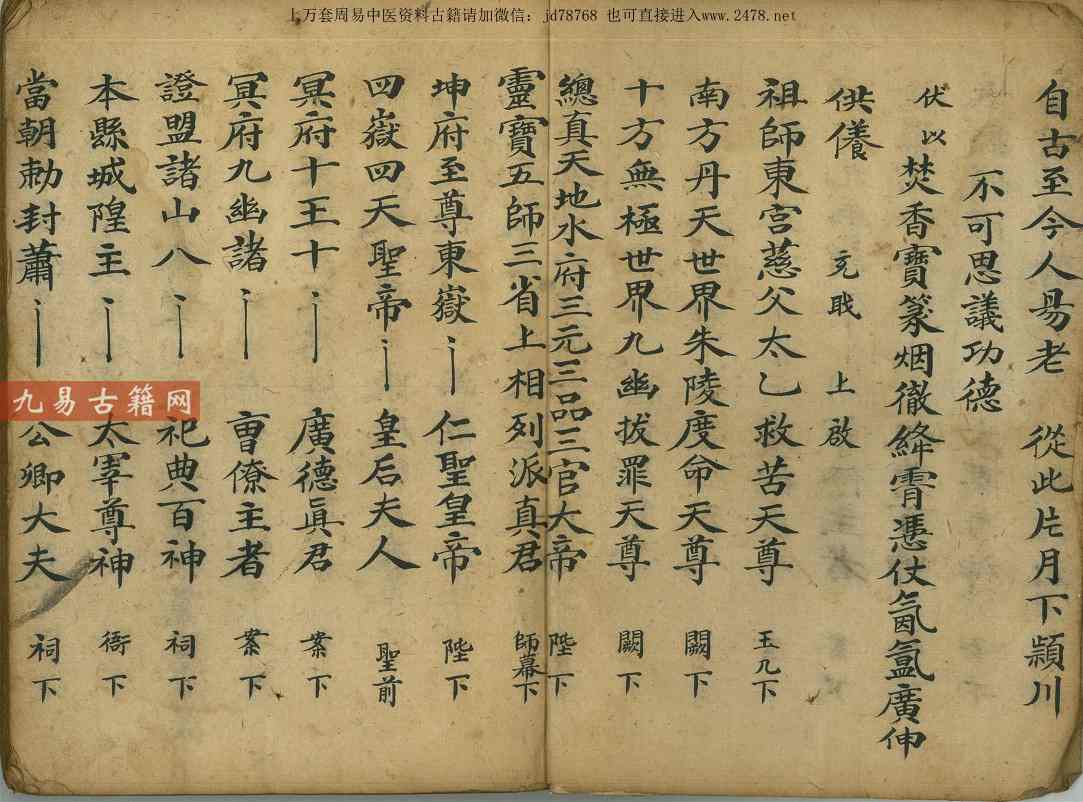 上万套周易中医资料古籍请加微信：jd78768 也可直接进入www.2478.net
自古至今人易老 從此片月下潁川
不可思議功德
伏以 焚香寶篆烟徹絳霄憑仗氤氳廣伸
供養 上啟
祖師東宮慈父太乙救苦天尊 玉几下
南方丹天世界朱陵度命天尊 闕下
十方無極世界九幽拔罪天尊 闕下
總真天地水府三元三品三官大帝 陛下
靈寶五師三省上相列派真君 師幕下
坤府至尊東嶽 仁聖皇帝 陛下
四嶽四天聖帝 皇后夫人 聖前
冥府十王十 廣德眞君 案下
冥府九幽諸 曺僚主者 案下
證盟諸山八 祀典百神 祠下
本縣城隍主 太宰尊神 衙下
當朝勅封蕭 公卿大夫 祠下
九易古籍网